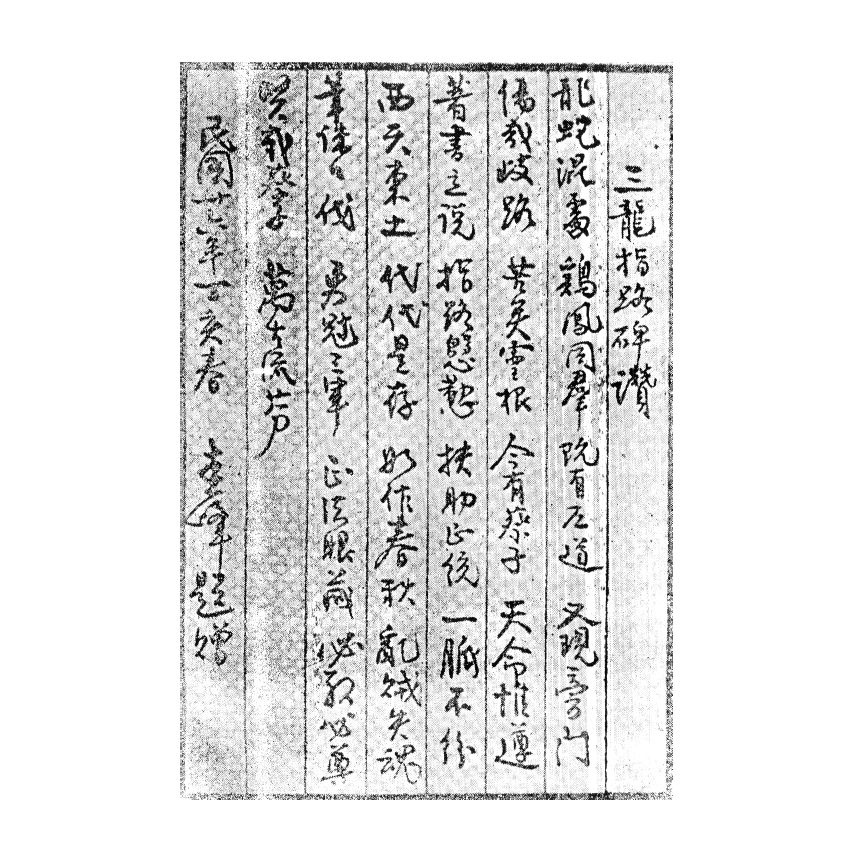 三龍指路碑讚
龍蛇混雲 鷄鳳同羣 既有左道 又現旁门
傷哉歧路 苦矣靈根 今有蔡子 天命惟遵
著書立说 指路慇懃 扶助正统 一脈不紛
西天東土 代代是存 如作春秋 亂賊失魂
筆誅口伐 勇冠三軍 正法眼藏 必敬必尊
賢哉蔡子 萬古流芳
民國廿六年丁亥春 峰題贈